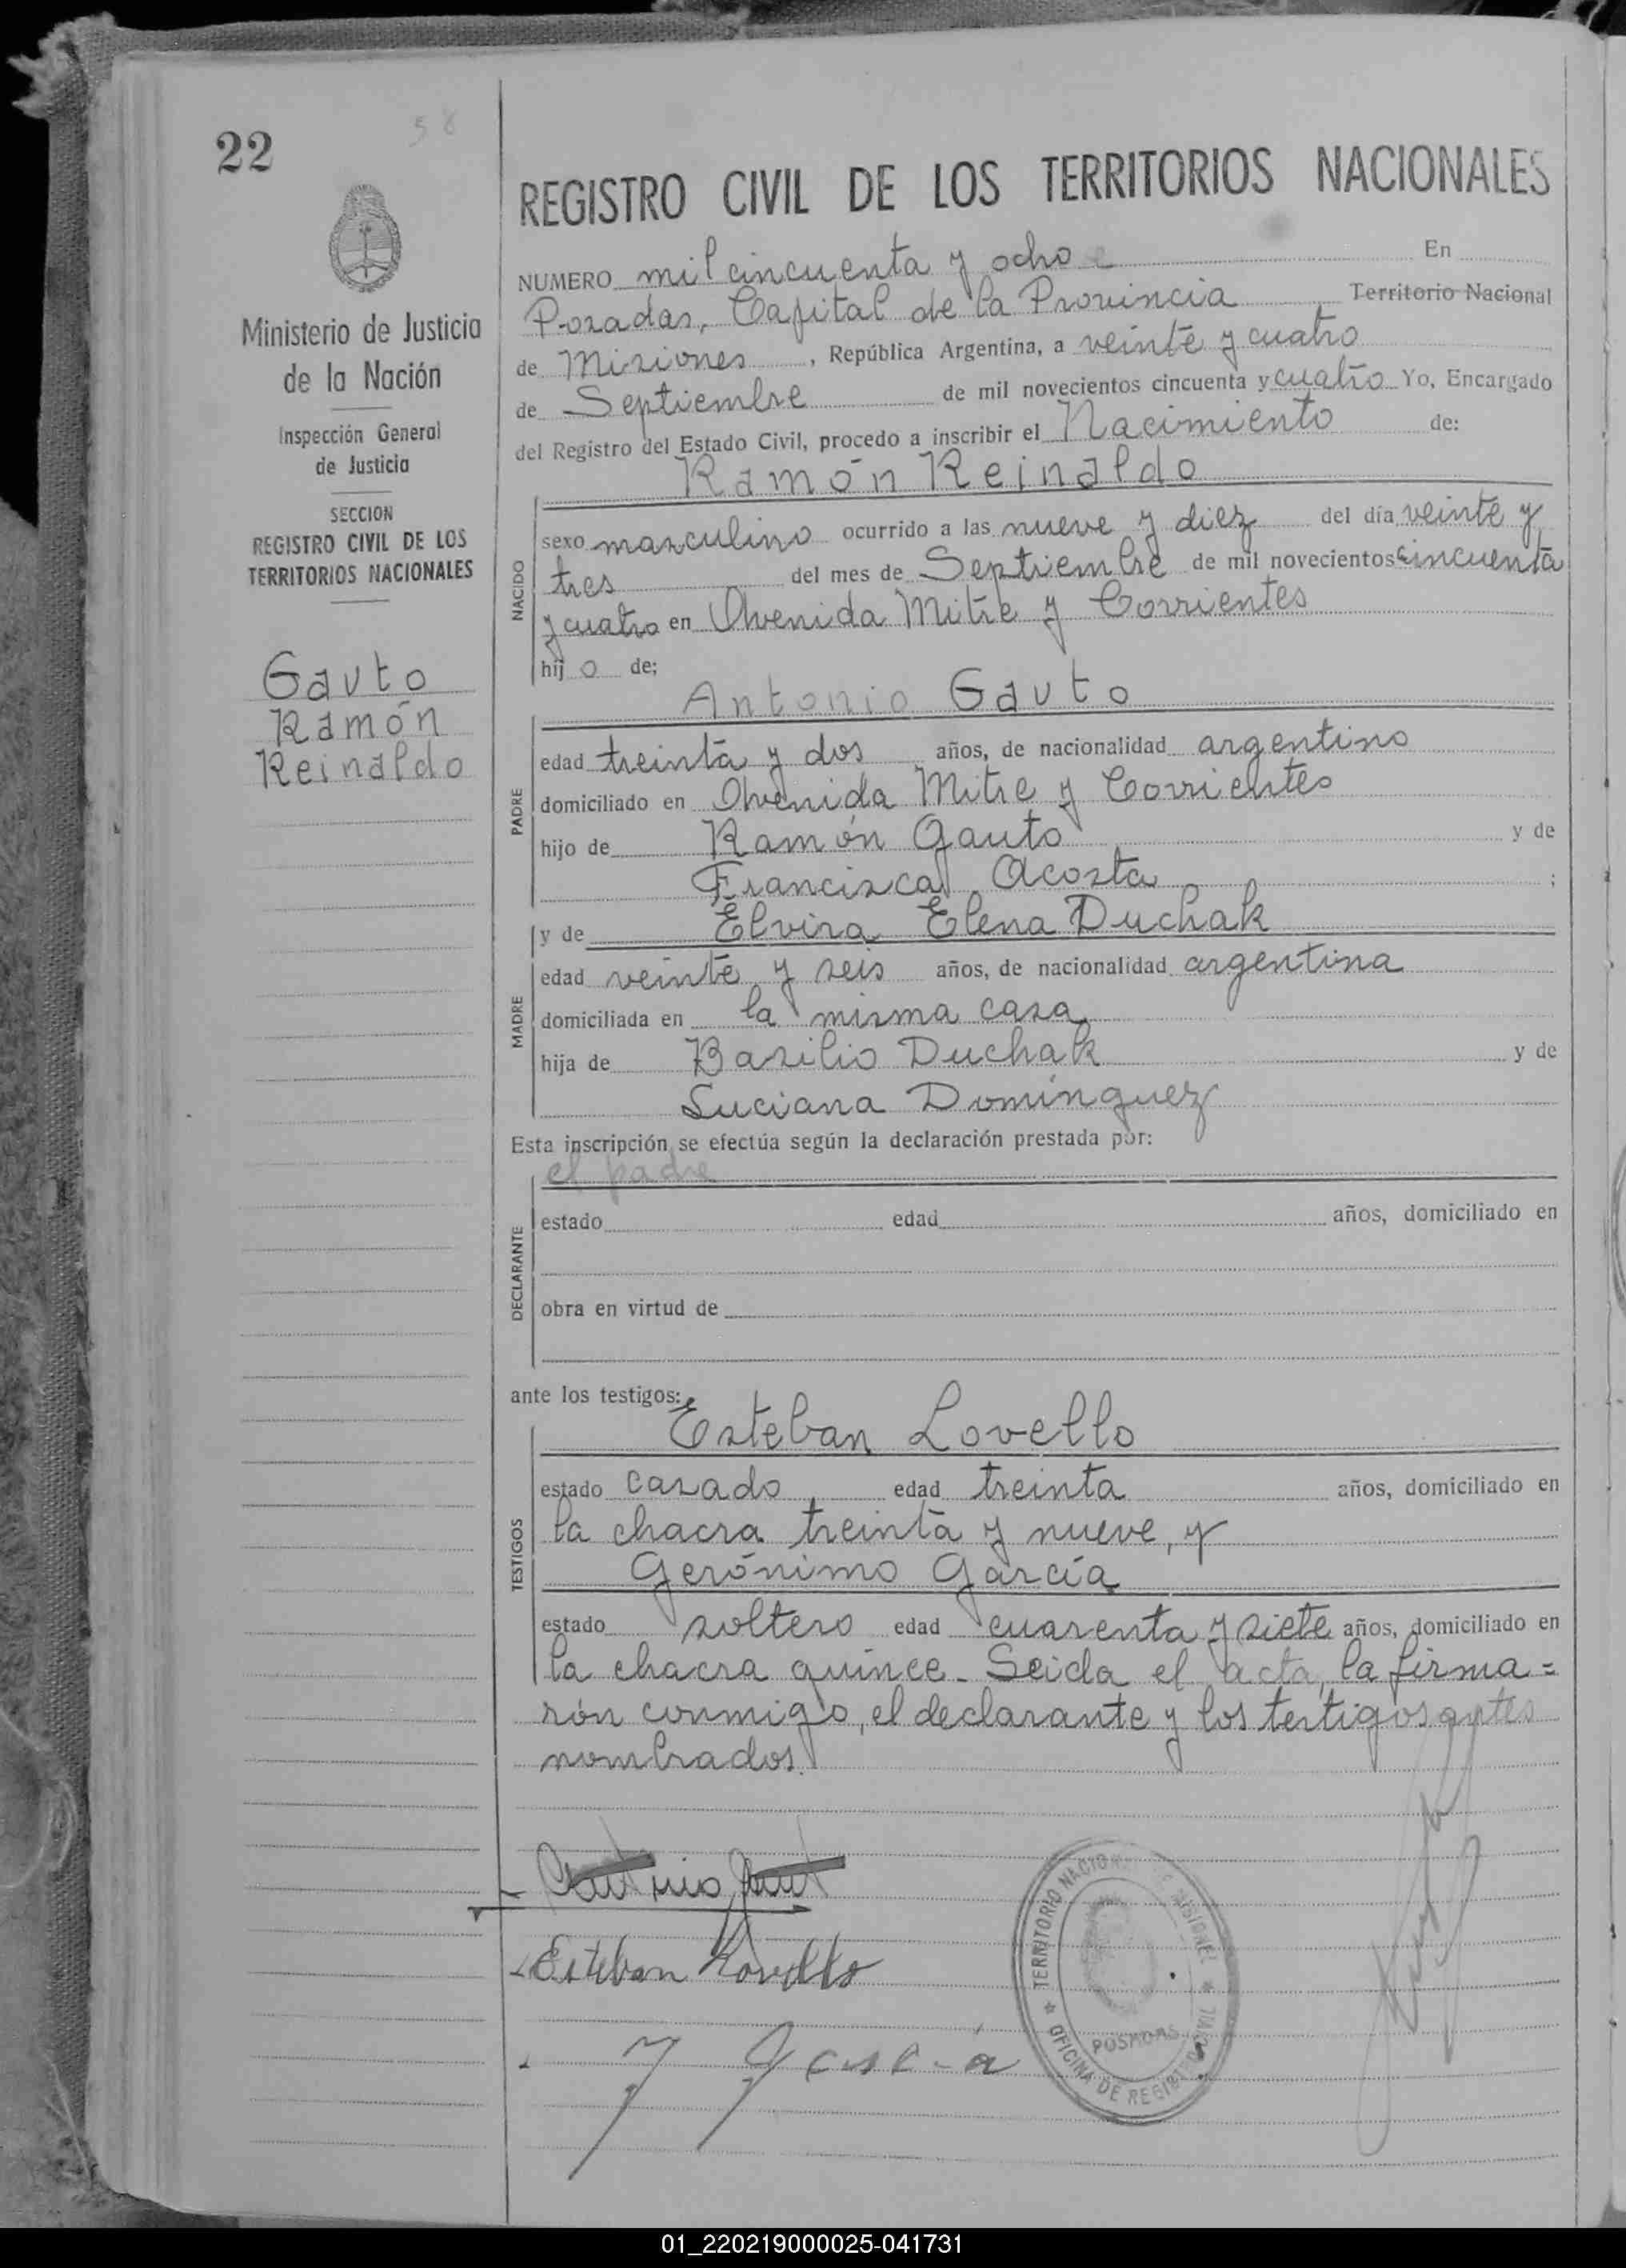 22
58
Ministerio de Justicia
de la Nación
Inspección General
de Justicia
SECCION
REGISTRO CIVIL DE LOS
TERRITORIOS NACIONALES
Gauto
Ramón
Reinaldo
REGISTRO CIVIL DE LOS TERRITORIOS NACIONALES
NUMERO mil cincuenta y ocho En
Posadas, Capital de la Provincia Territorio Nacional
de Misiones, República Argentina, a veinte y cuatro
de Septiembre de mil novecientos cincuenta y cuatro Yo, Encargado
del Registro del Estado Civil, procedo a inscribir el Nacimiento de:
Ramón Reinaldo
NACIDO
sexo masculino ocurrido a las nueve y diez del día veinte y
tres del mes de Septiembre de mil novecientos cincuenta
y cuatro en Avenida Mitre y Corrientes
hij o de;
Antonio Gauto
PADRE
edad treinta y dos años, de nacionalidad argentino
domiciliado en Avenida Mitre y Corrientes
hijo de Ramón Gauto y de
Francisca Acosta ;
y de Elvira Elena Duchak
MADRE
edad veinte y seis años, de nacionalidad argentina
domiciliada en la misma casa
hija de Basilio Duchak y de
Luciana Domínguez
Esta inscripción se efectúa según la declaración prestada por:
el padre
DECLARANTE
estado edad años, domiciliado en
obra en virtud de
ante los testigos:
Esteban Lovello
TESTIGOS
estado casado edad treinta años, domiciliado en
la chacra treinta y nueve, y
Gerónimo García
estado soltero edad cuarenta y siete años, domiciliado en
la chacra quince. Leida el acta, la firma=
rón conmigo, el declarante y los testigos antes
nombrados.
Antonio Gauto
Esteban Lovello
TERRITORIO NACIONAL MISIONES
POSADAS
OFICINA DE REGISTRO CIVIL
01_220219000025-041731